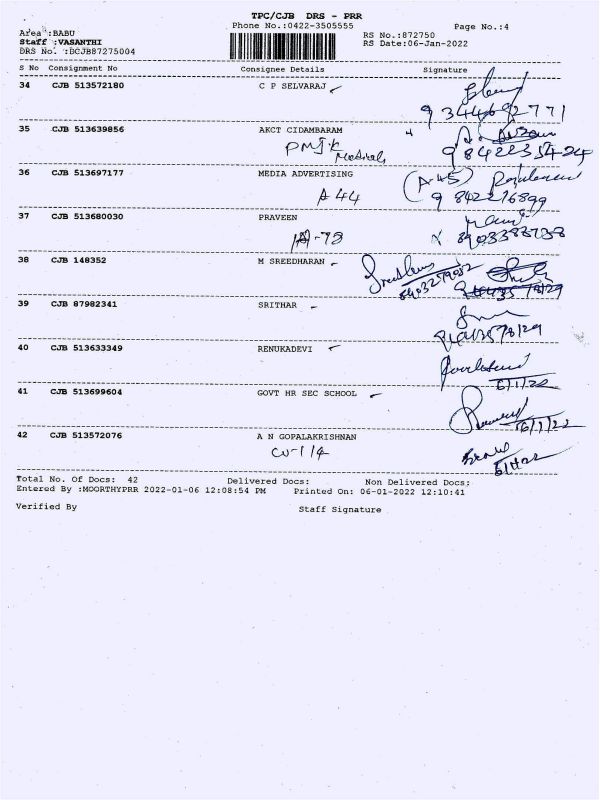 TPC/CJB DRS - PRR
Phone No.:0422-3505555 Page No.:4
Area :BABU RS No.:872750
Staff :VASANTHI RS Date:06-Jan-2022
DRS No. :BCJB87275004
S No Consignment No Consignee Details Signature
34 CJB 513572180 C P SELVARAJ
35 CJB 513639856 AKCT CIDAMBARAM
PMJK Medicals
36 CJB 513697177 MEDIA ADVERTISING (A-45)
A 44 9 842216899
37 CJB 513680030 PRAVEEN
8903383738
38 CJB 148352 M SREEDHARAN
39 CJB 87982341 SRITHAR
40 CJB 513633349 RENUKADEVI
6/1/22
41 CJB 513699604 GOVT HR SEC SCHOOL
6/1/22
42 CJB 513572076 A N GOPALAKRISHNAN
Total No. Of Docs: 42 Delivered Docs: Non Delivered Docs:
Entered By :MOORTHYPRR 2022-01-06 12:08:54 PM Printed On: 06-01-2022 12:10:41
Verified By Staff Signature